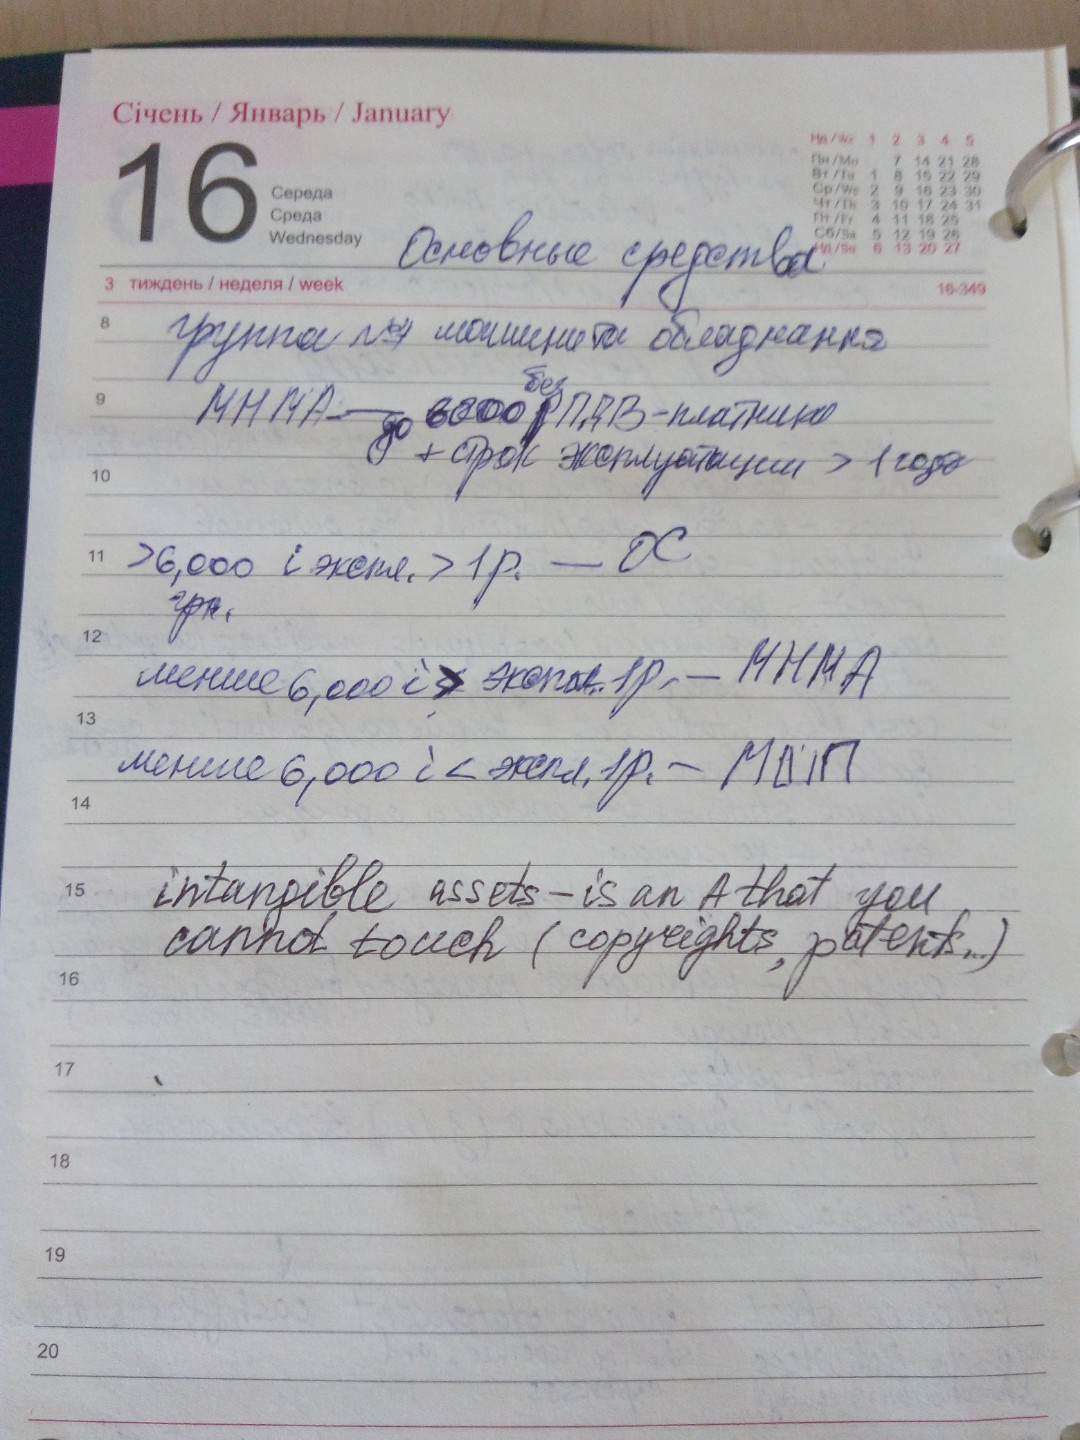 Січень / Январь / January
16
Середа
Среда
Wednesday
Нд/We 1 2 3 4 5
Пн/Mo 7 14 21 28
Вт/Tu 1 8 15 22 29
Ср/We 2 9 16 23 30
Чт/Th 3 10 17 24 31
Пт/Fr 4 11 18 25
Сб/Sa 5 12 19 26
Нд/Su 6 13 20 27
Основные средства
3 тиждень / неделя / week
16-349
8 группа №4 машини та обладнання
без
9 МНМА — до 6000 ПДВ-платники
+ строк эксплуатации > 1 года
10
11 >6,000 і экспл. > 1р. — ОС
грн.
12
менше 6,000 і > экспл. 1р. — МНМА
13
менше 6,000 і < экспл. 1р. — МШП
14
15 intangible assets – is an A that you
cannot touch (copyrights, patents...)
16
17
18
19
20